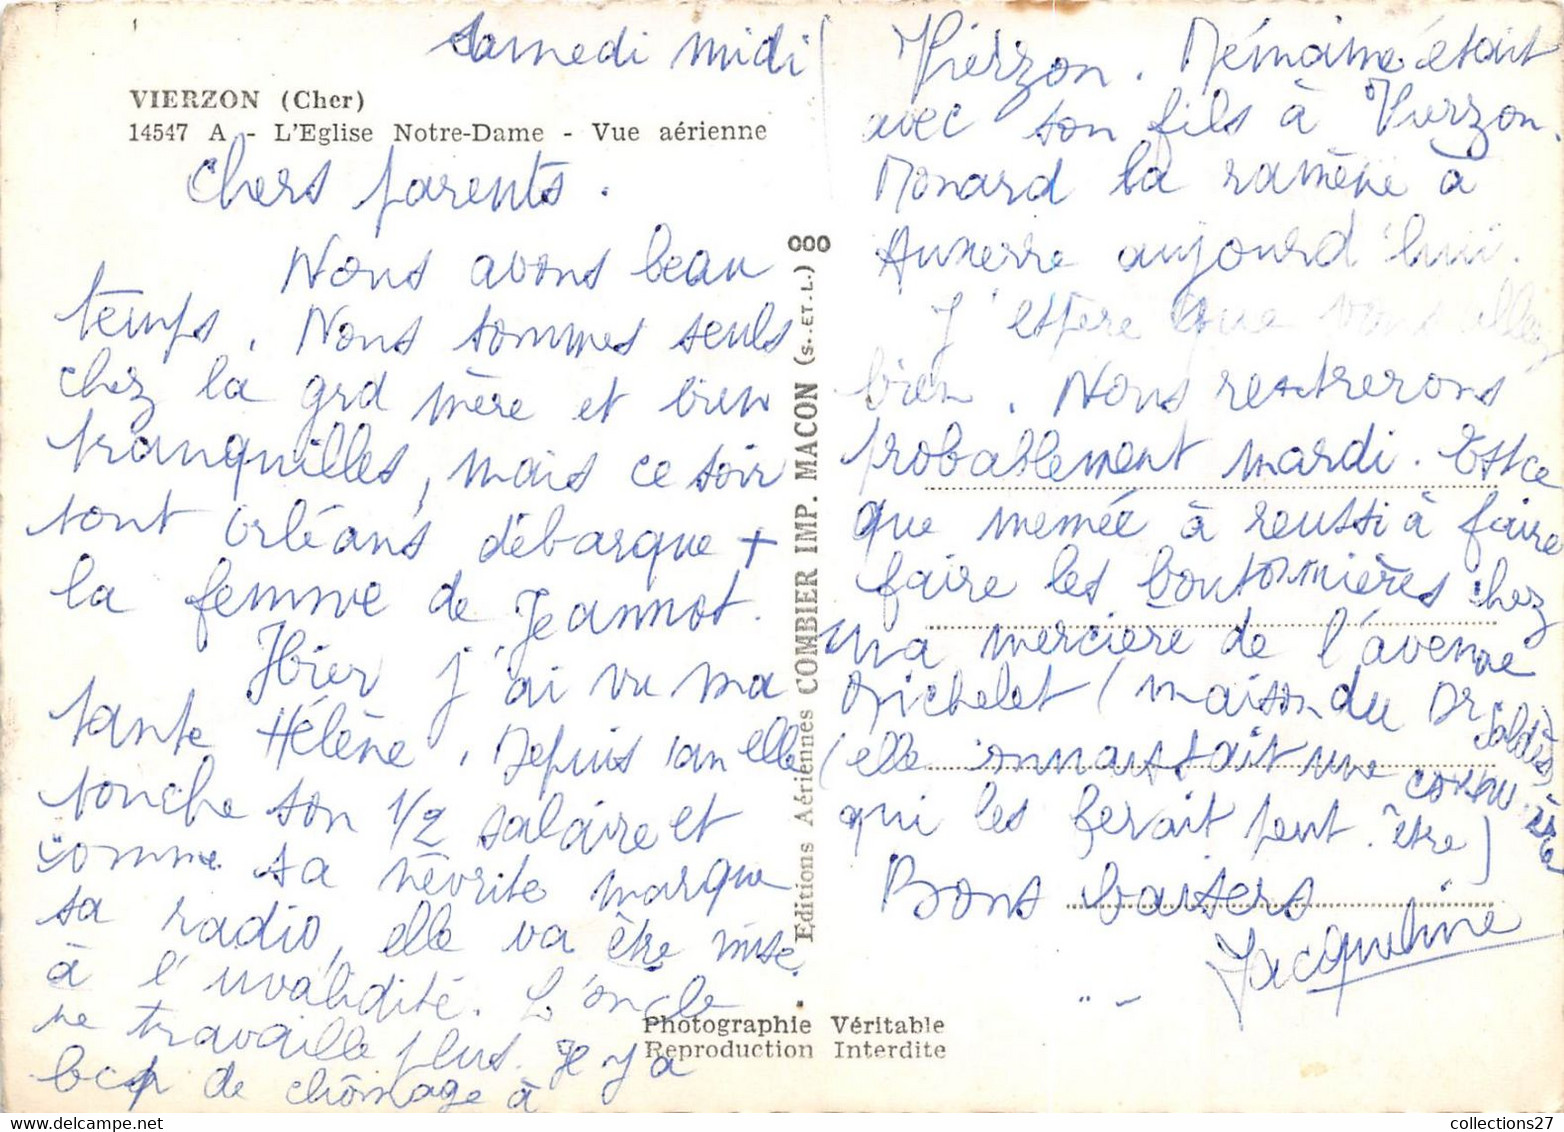 samedi midi
VIERZON (Cher)
14547 A - L'Eglise Notre-Dame - Vue aérienne
Chers parents.
Nous avons beau
temps. Nous sommes seuls
chez la grd mère et bien
tranquilles, mais ce soir
tout Orléans débarque +
la femme de Jeannot.
Hier j'ai vu ma
tante Hélène. Depuis 1 an elle
touche son 1/2 salaire et
comme sa névrite marque
sa radio, elle va être mise
à l'invalidité. L'oncle
ne travaille plus. Il y a
bcp de chômage à
Vierzon. Mémaine était
avec son fils à Vierzon.
Monard la ramène à
Auxerre aujourd'hui.
J'espère que vous allez
bien. Nous rentrerons
probablement mardi. Est ce
que memée à reussi à faire
faire les boutonnières chez
ma merciere de l'avenue
Michelet (maison du Dr Soldès)
(elle connaissait une couturière
qui les ferait peut-être)
Bons baisers
Jacqueline
000
Editions Aériennes COMBIER IMP. MACON (S.-ET-L.)
Photographie Véritable
Reproduction Interdite
collections27